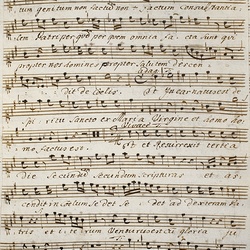 tum genitum non factum + + actum consubstantia:
lem Patri per quem omnia fa. cta sunt qui
propter nos homines propter salutem descen:
Adag:
. . dit de Coelis. Et Yncarnatus est de
spi ritu Sancto ex Maria Virgine et homo ho
mo factus est. Et Resurrexit tertia
die secundu secundum scripturas et as:
cendit in Coelum sedet se. det ad dexteram
tris et iterum Venturus est cu gloria ju